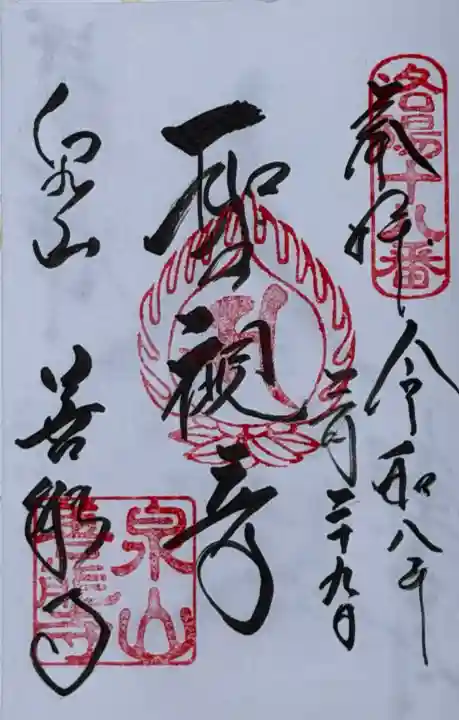 洛陽十八番
奉拝 令和八年
三月二十九日
聖観音
泉山 善能寺
泉山
善能寺